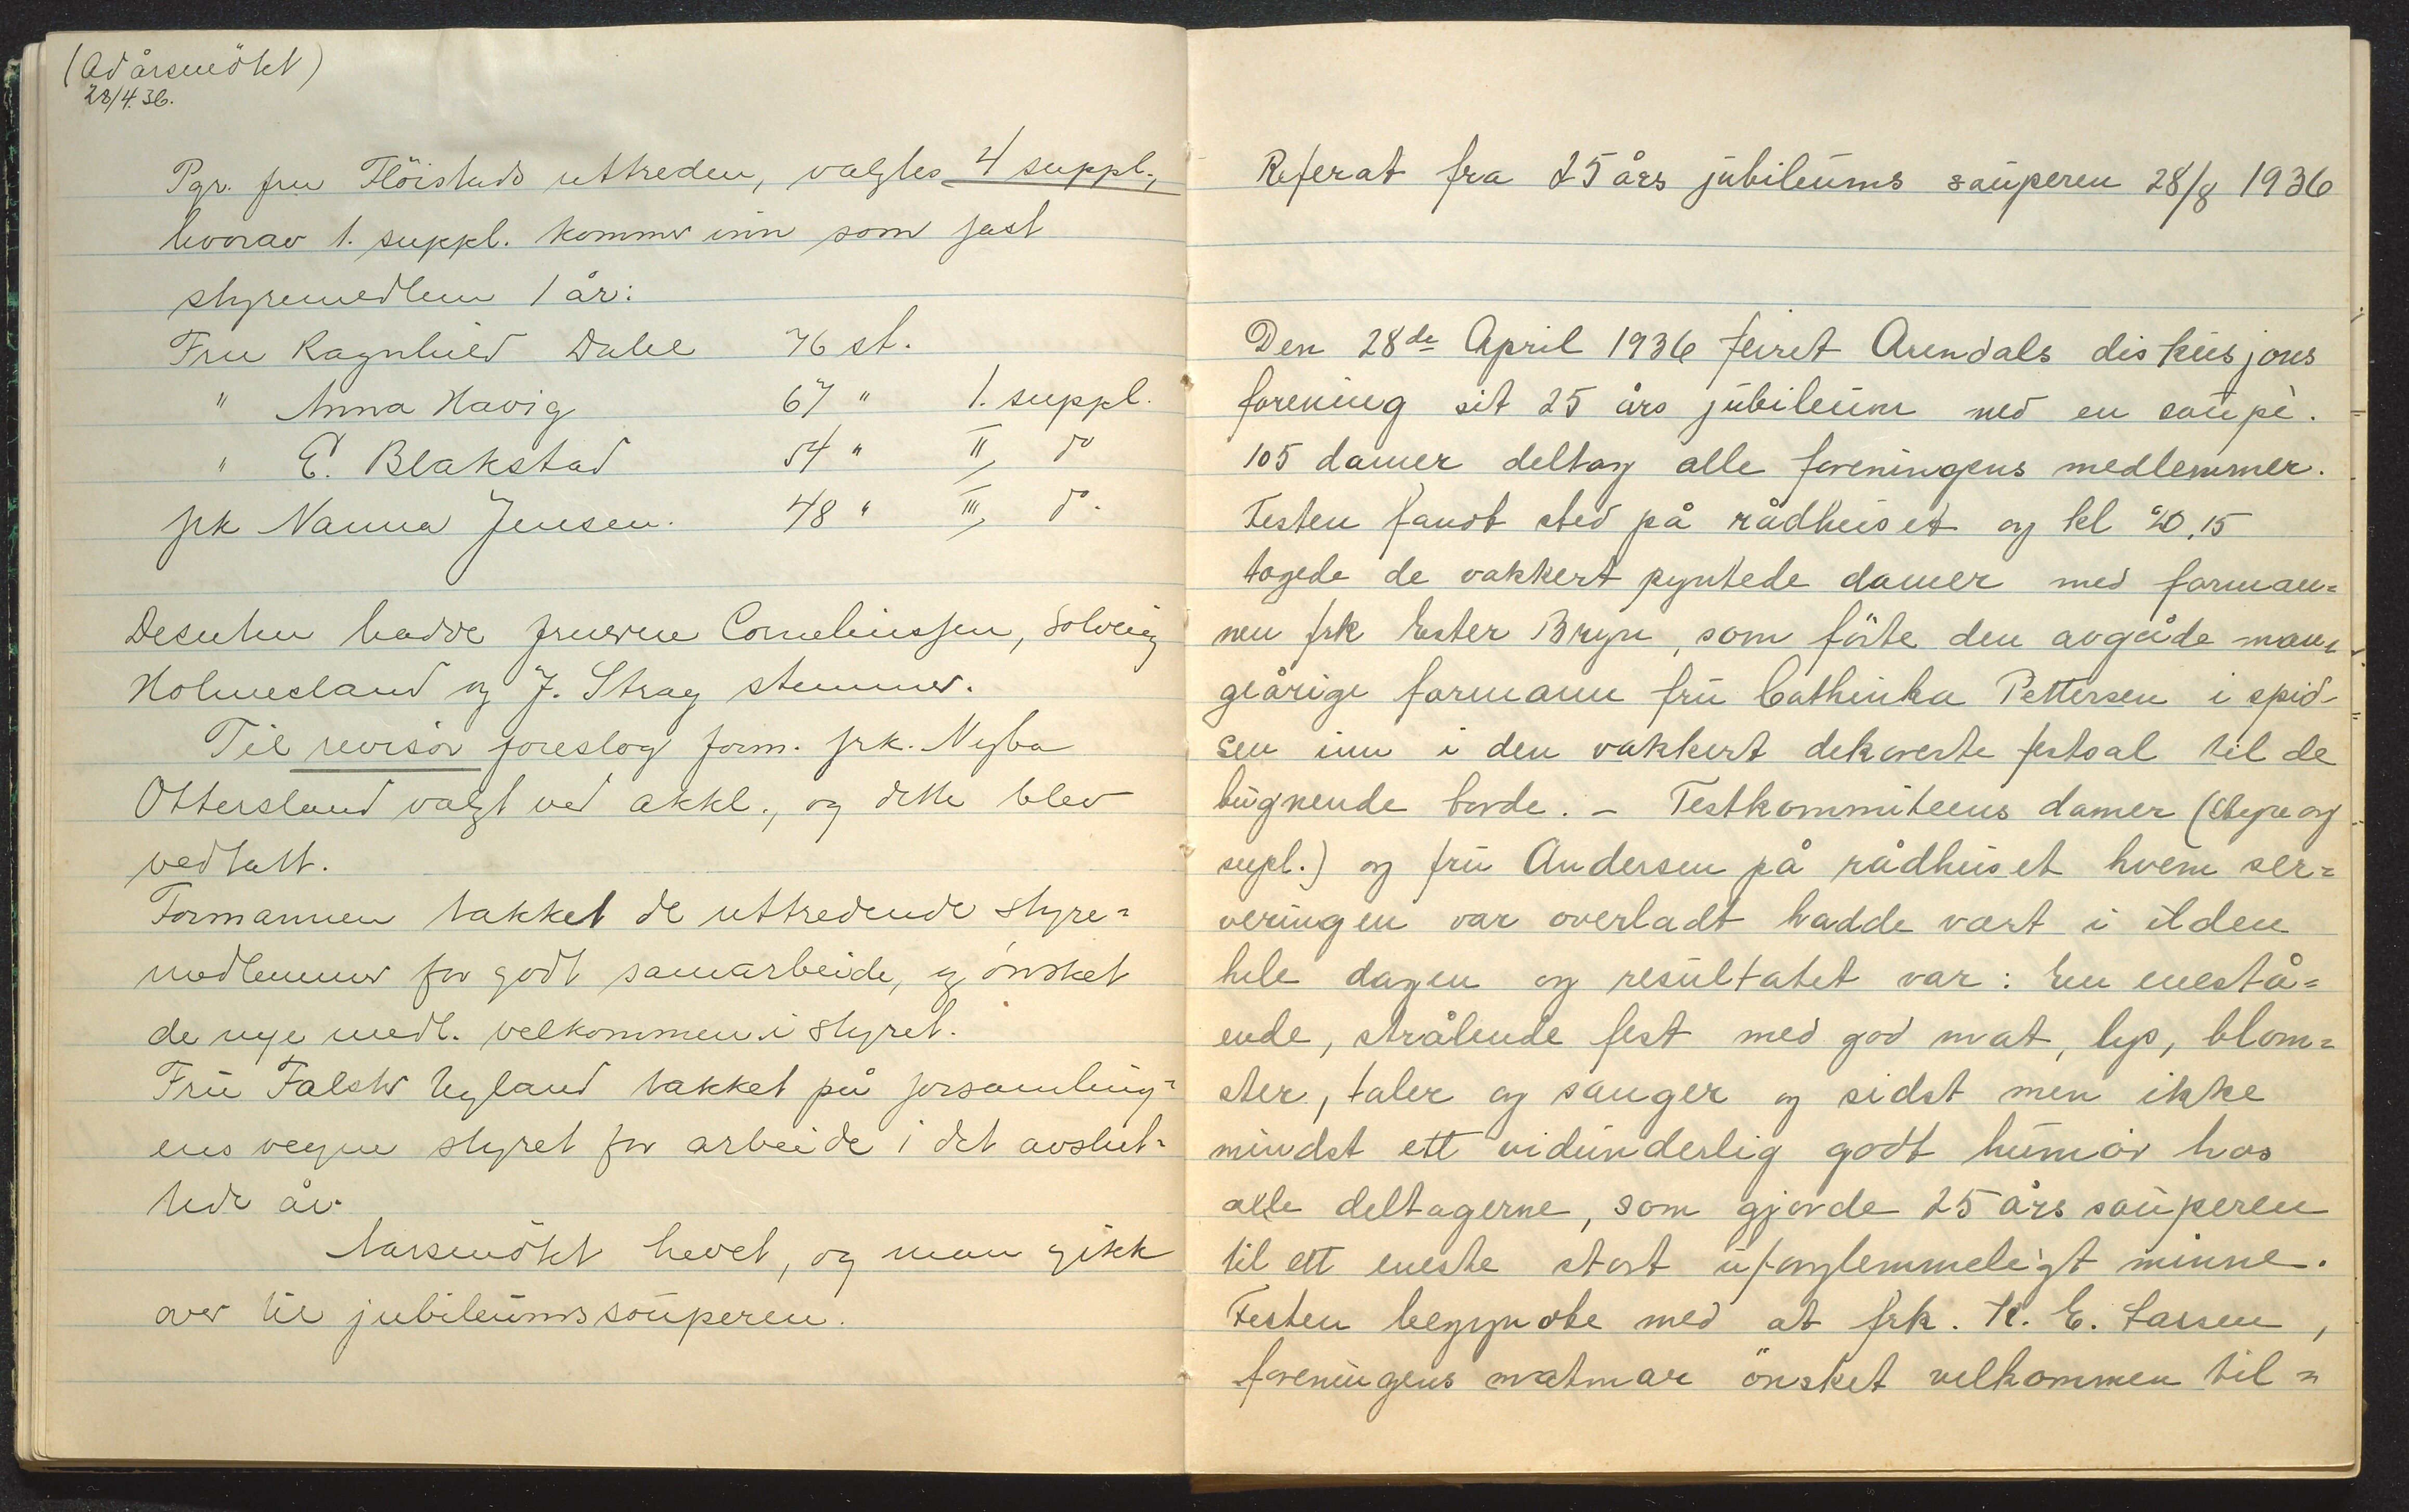 (Ad årsmötet)
28/4.36.
Pgr. fru Flöistads uttreden, valgtes 4 suppl.,
hvorav 1. suppl. kommer inn som fast
styremedlem 1 år:
Fru Ragnhild Dahl 76 st.
" Anna Havig 67 " 1. suppl.
" E. Blakstad 54 " II, do
frk Nanna Jensen. 48 " III, do.
Desuten hadde fruerne Corneliussen, Solveig
Holmesland og J. Stray stemmer.
Til revisor foreslog form. frk. Nyba
Ottersland valgt ved akkl., og dette blev
vedtatt.
Formannen takket de uttredende styre=
medlemmer for godt samarbeide, og önsket
de nye medl. velkommen i styret.
Frü Falster Ugland takket på forsamling=
ens vegne styret for arbeide i det avslut=
tede år.
Aarsmötet hevet, og man gikk
over til jubileümssoüperen.
Referat fra 25 års jübileüms saüperen 28/8 1936
Den 28de April 1936 feiret Arendals diskusjons
forening sit 25 års jübileüm med en soüpè.
105 damer deltog alle foreningens medlemmer.
Festen fandt sted på rådhüset og kl 20,15
togede de vakkert pyntede damer med forman=
nen frk Ester Bryn, som förte den avgåde man=
geårige formann frü Cathinka Pettersen i spid-
sen inn i den vakkert dekorerte festsal til de
bügnende borde. – Festkommiteens damer (styre og
supl.) og frü Andersen på rådhüset hvem ser=
veringen var overladt hadde vært i ilden
hele dagen og resültatet var: En enestå=
ende, strålende fest med god mat, lys, blom=
ster, taler og sanger og sidst men ikke
mindst ett vidünderlig godt hümör hos
alle deltagerne, som gjorde 25 års soüperen
til ett eneste stort üforglemmeligt minne.
Festen begyndte med at frk. K. E. Lassen,
foreningens matmor önsket velkommen til =